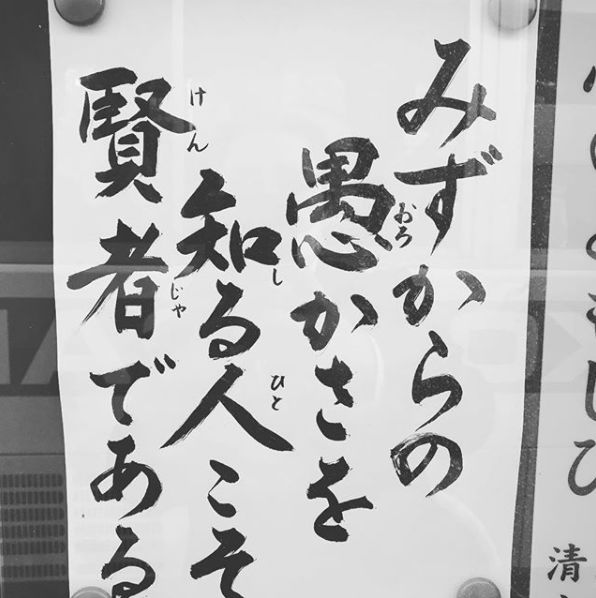 みずからの
愚かさを
おろ
知る人こそ
し
ひと
賢者である
けん
じゃ
清